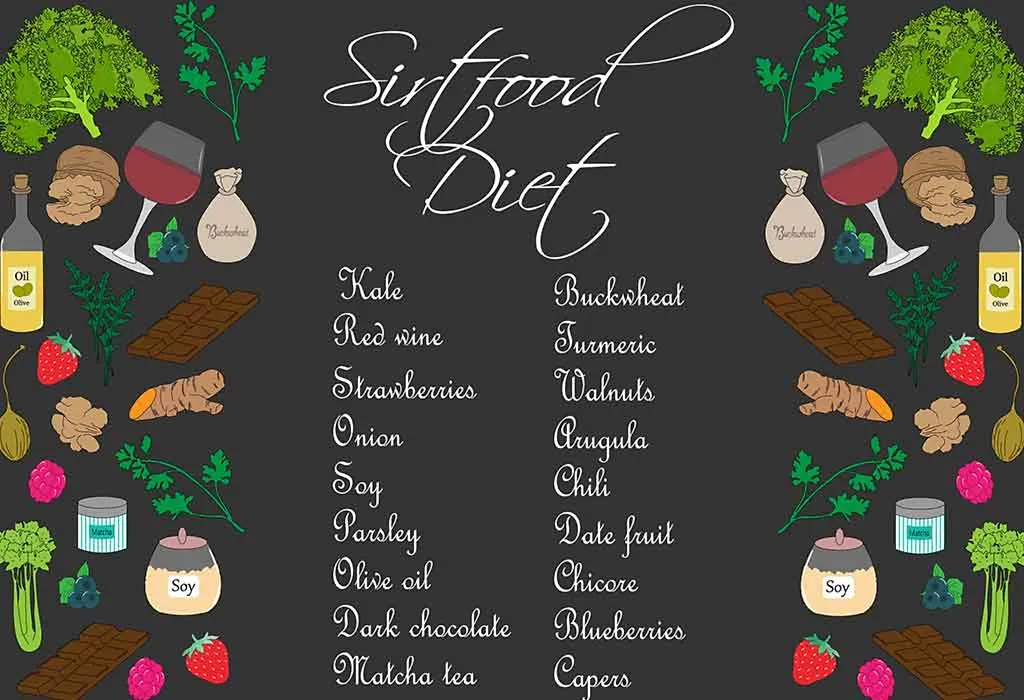 Sirtfood
Diet
Kale
Red wine
Strawberries
Onion
Soy
Parsley
Olive oil
Dark chocolate
Matcha tea
Buckwheat
Turmeric
Walnuts
Arugula
Chili
Date fruit
Chicore
Blueberries
Capers
Buckwheat
Oil
Olive
Matcha
Soy
Buckwheat
Oil
Olive
Matcha
Soy